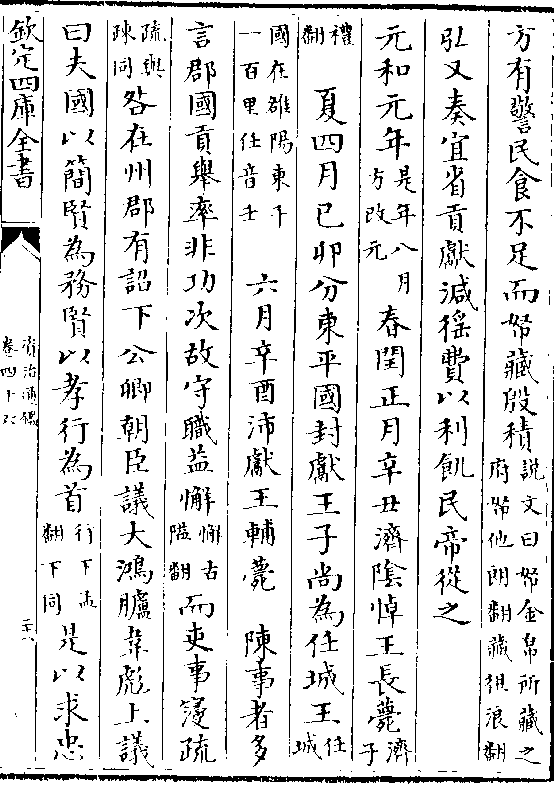 方有警民食不足而帑藏殷積說文曰帑金帛所藏之府帑他朗翻藏徂浪翻
弘又奏宜省貢獻減徭費以利飢民帝從之
元和元年是年八月方改元春閏正月辛丑濟隂悼王長薨濟子
禮翻夏四月己卯分東平國封獻王子尚為任城王任城
國在雒陽東千一百里任音壬六月辛酉沛獻王輔薨陳事者多
言郡國貢舉率非功次故守職益懈懈古隘翻而吏事寖疏
疏與踈同咎在州郡有詔下公卿朝臣議大鴻臚韋彪上議
曰夫國以簡賢為務賢以孝行為首行下孟翻下同是以求忠
欽定四庫全書
資治通鑑
卷四十六